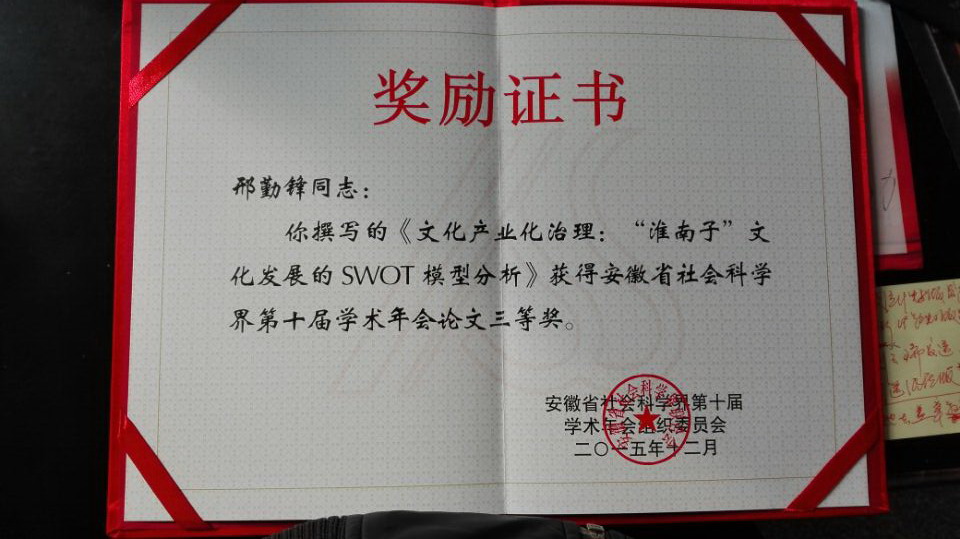 奖励证书
邢勤锋同志：
你撰写的《文化产业化治理：“淮南子”文
化发展的SWOT模型分析》获得安徽省社会科学
界第十届学术年会论文三等奖。
安徽省社会科学界第十届
学术年会组织委员会
二〇一五年十二月